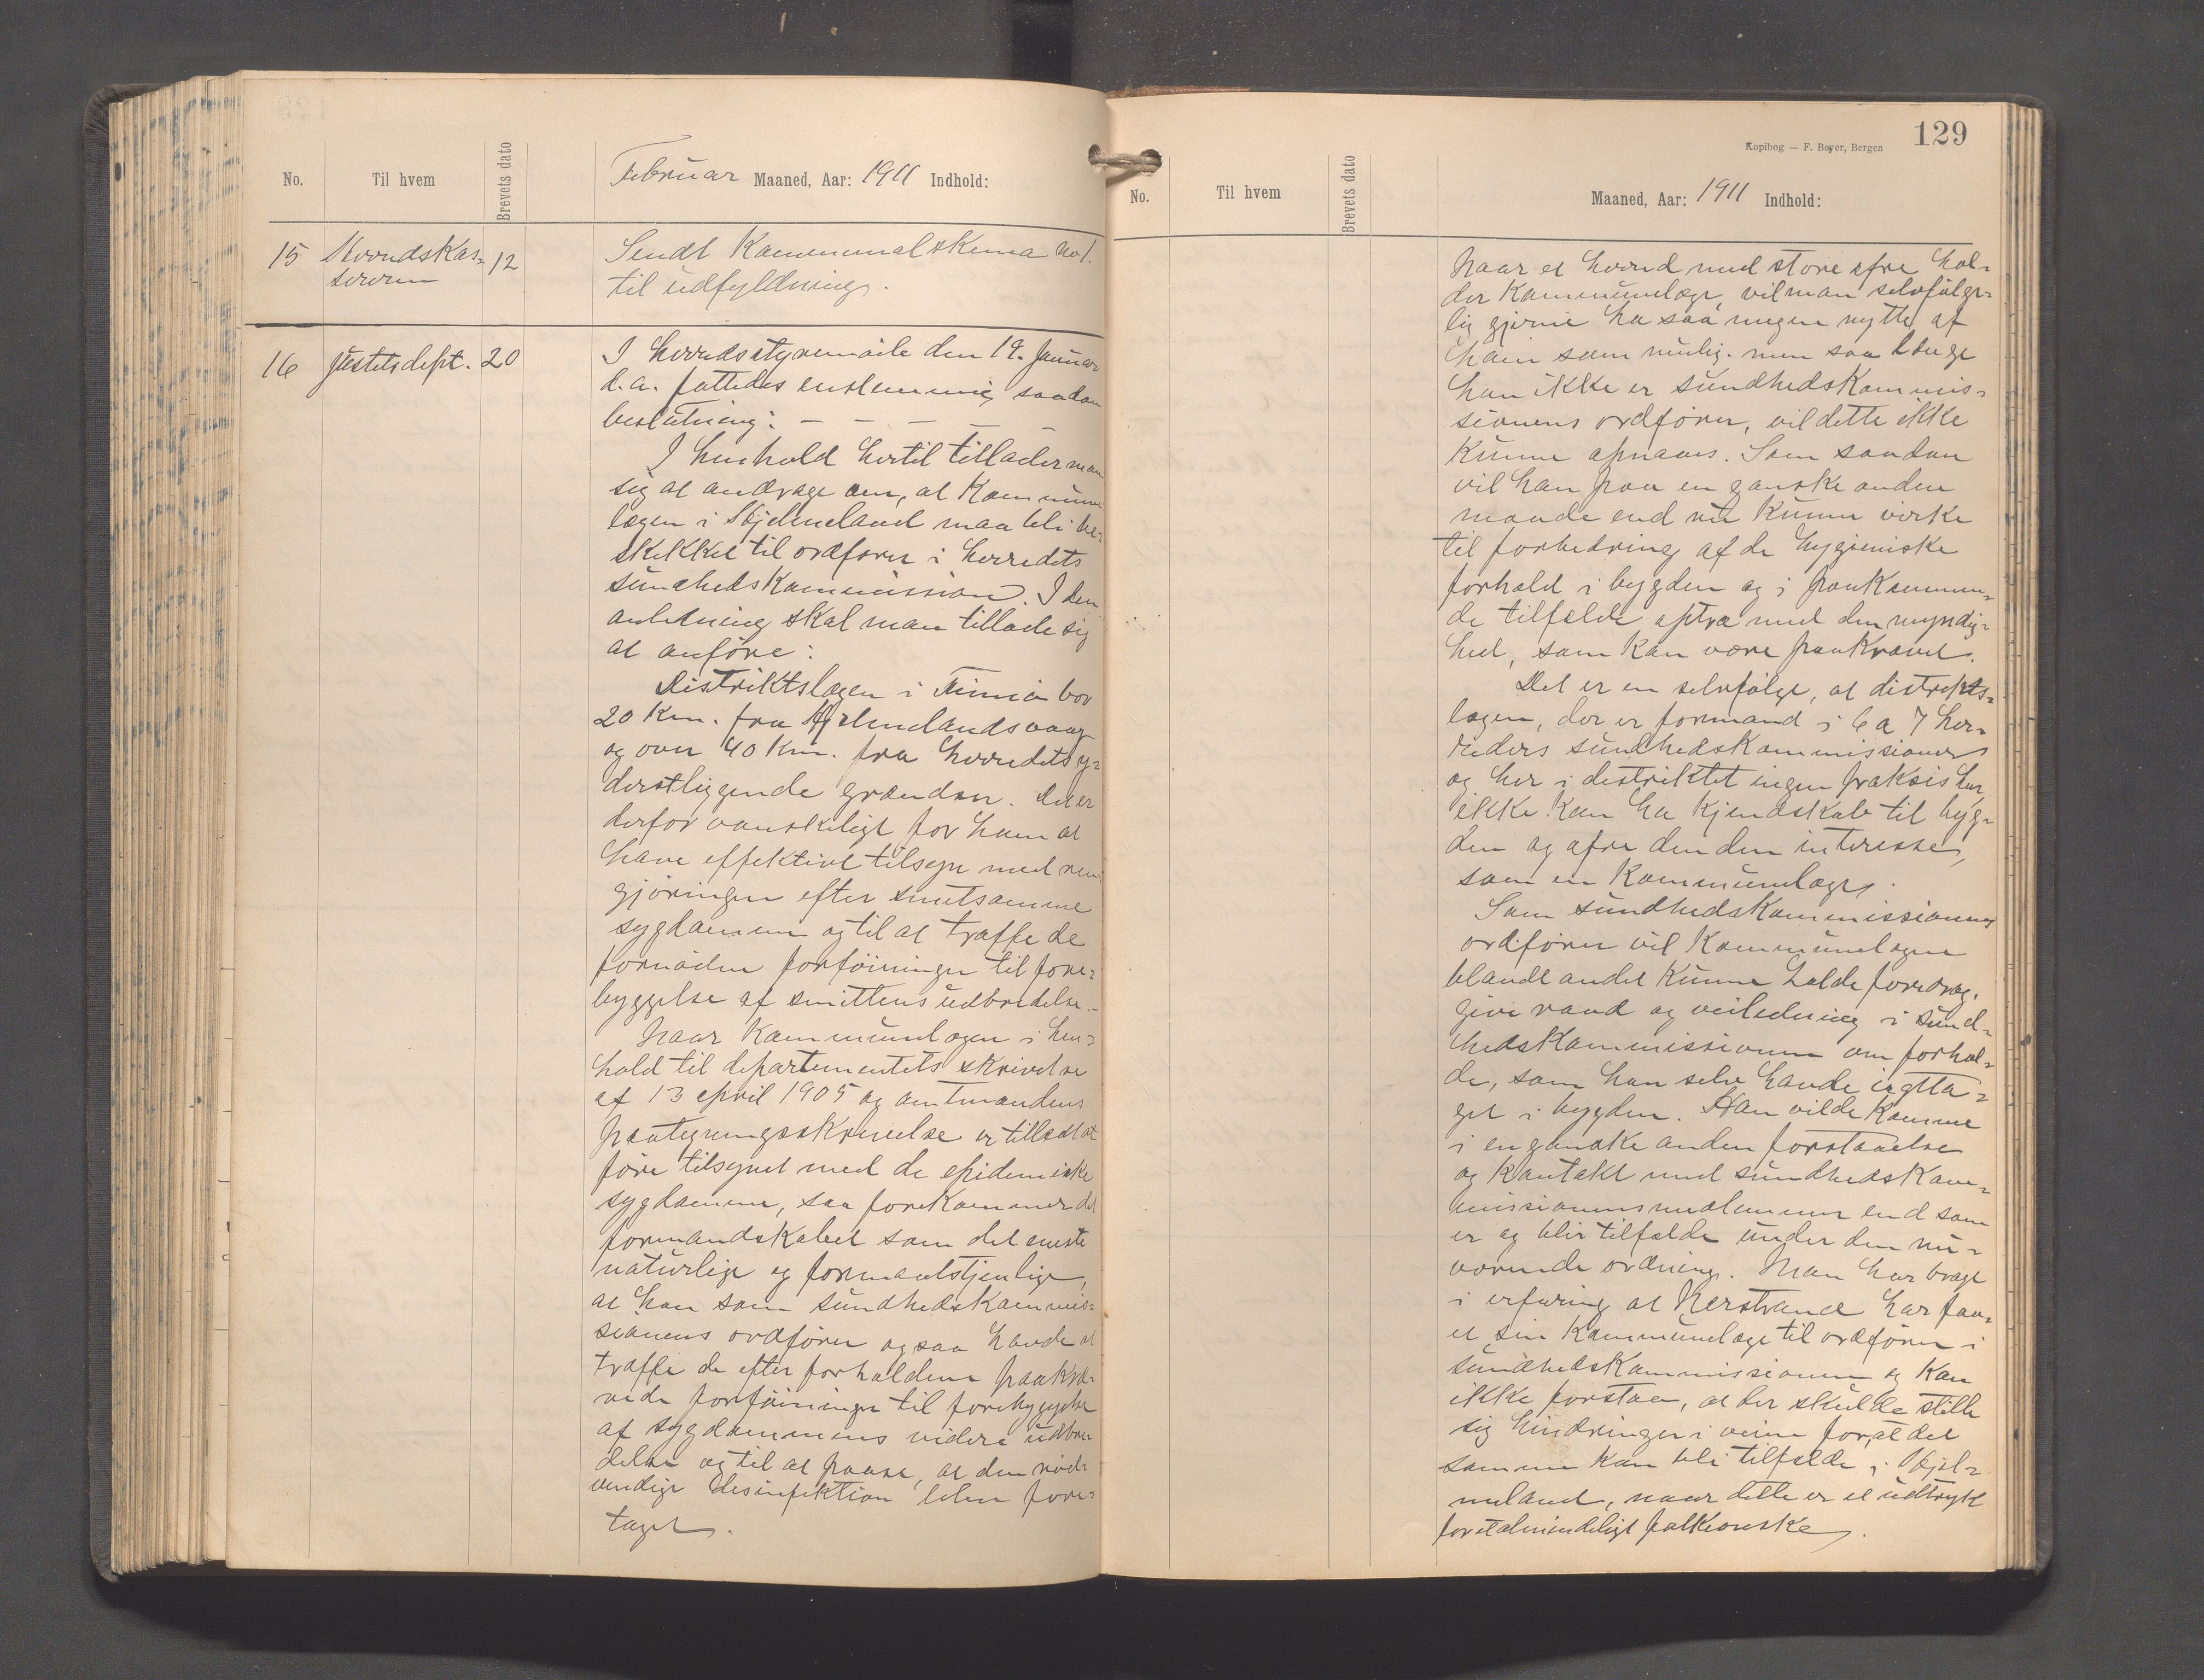 No.
Til hvem
Brevets dato
Februar Maaned, Aar: 1911 Indhold:
15 Herredskas= 12 Sendt Kommunalskema No 1.
sereren til udfyldning.
16 Justitsdept. 20 I herredsstyremöte den 19. Januar
d.a. fattedes enstemmig saadan
beslutning: — — — — —
I henhold hertil tillader man
sig at andrage om, at Kommune
lægen i Hjelmeland maa bli be=
skikket til ordförer i herredets
sundhedskommission. I den
anledning skal man tillade sig
at anföre:
Distriktslægen i Finnö bor
20 Km. fra Hjelmelandsvaag
og over 40 Km. fra herredets y=
derstliggende grænder. Det er
derfor vanskeligt for ham at
have effektivt tilsyn med ren
gjöringen efter smitsomme
sygdomme og til at træffe de
fornödne forföininger til fore=
byggelse af smittens udbredelse.
Naar Kommunelægen i hen=
hold til departementets skrivelse
af 13 april 1905 og amtmandens
paategningsskrivelse er tilladt at
före tilsynet med de epidemiske
sygdomme, saa forekommer det
formandskabet som det eneste
naturlige og formaalstjenlige,
at han som sundhedskommis=
sionens ordförer ogsaa havde at
træffe de efter forholdene paakræ=
vede forföininger til forebyggelse
af sygdommens videre udbre
delse og til at paase, at den nöd
vendige desinfektion blev fore=
taget.
129
Kopibog — F. Beyer, Bergen
No.
Til hvem
Brevets dato
Maaned, Aar: 1911 Indhold:
Naar et herred med store ofre hol=
der Kommunelæge, vil man selvfölge=
lig gjerne ha saa megen nytte af
ham som mulig. men saa længe
han ikke er sundhedskommis=
sionens ordförer, vil dette ikke
kunne opnaaes. Som saadan
vil han paa en ganske anden
maade end nu kunne virke
til forbedring af de hygieniske
forhold i bygden og i paakommen=
de tilfælde optræ med den myndig=
hed, som kan være paakrævet.
Det er en selvfölge, at distrikts=
lægen, der er formand i 6 a 7 her=
reders sundhedskommissioner
og her i distriktet ingen praksis har,
ikke kan ha kjendskab til byg=
den og ofre den den interesse,
som en Kommunelæge.
Som sundhedskommissionens
ordförer vil Kommunelægen
blandt andet kunne holde foredrag.
give raad og veiledning i sund=
hedskommissionen om forhol=
de, som han selv havde iagtta=
get i bygden. Han vilde komme
i en ganske anden forstaaelse
og kontakt med sundhedskom=
missionens medlemmer end som
er og blir tilfælde under den nu=
værende ordning. Man har bragt
i erfaring at Nerstrand har faa=
et sin Kommunelæge til ordförer i
sundhedskommissionen og kan
ikke forstaa, at der skulde stille
sig hindringer i veien for, at det
samme kan bli tilfælde i Hjel=
meland, naar dette er et udtryk
for et almindeligt folkeönske.